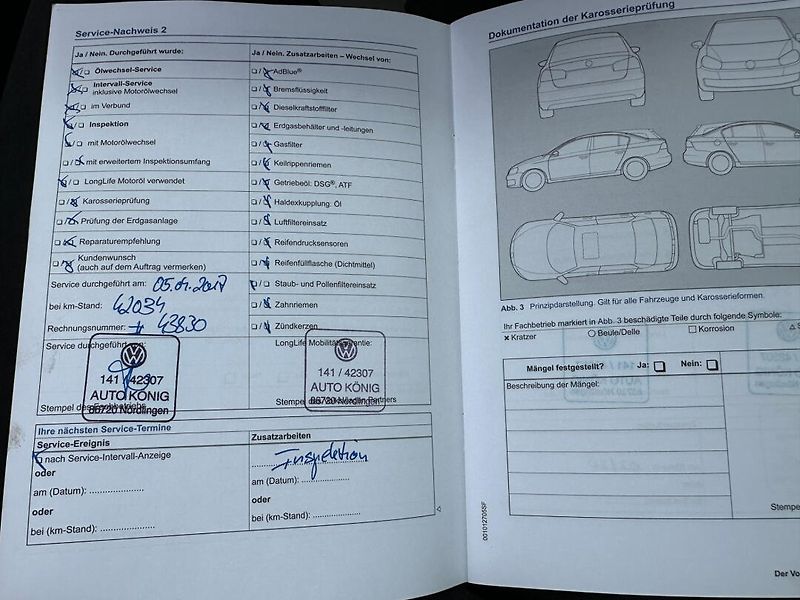 Service-Nachweis 2
Ja / Nein. Durchgeführt wurde:
Ölwechsel-Service
Intervall-Service
inklusive Motorölwechsel
im Verbund
Inspektion
mit Motorölwechsel
mit erweitertem Inspektionsumfang
LongLife Motoröl verwendet
Karosserieprüfung
Prüfung der Erdgasanlage
Reparaturempfehlung
Kundenwunsch
(auch auf dem Auftrag vermerken)
Service durchgeführt am: 05.04.2017
bei km-Stand: 42034
Rechnungsnummer: 43830
Service durchgeführt von:
141 / 42307
AUTO KÖNIG
86720 Nördlingen
Stempel des Fachbetriebs
Ja / Nein. Zusatzarbeiten – Wechsel von:
AdBlue®
Bremsflüssigkeit
Dieselkraftstofffilter
Erdgasbehälter und -leitungen
Gasfilter
Keilrippenriemen
Getriebeöl: DSG®, ATF
Haldexkupplung: Öl
Luftfiltereinsatz
Reifendrucksensoren
Reifenfüllflasche (Dichtmittel)
Staub- und Pollenfiltereinsatz
Zahnriemen
Zündkerzen
LongLife Mobilitätsgarantie:
141 / 42307
AUTO KÖNIG
86720 Nördlingen
Stempel des Volkswagen Partners
Ihre nächsten Service-Termine
Service-Ereignis
nach Service-Intervall-Anzeige
oder
am (Datum): ....................
oder
bei (km-Stand): ....................
Zusatzarbeiten
Inspektion
am (Datum): ....................
oder
bei (km-Stand): ....................
Dokumentation der Karosserieprüfung
Abb. 3 Prinzipdarstellung. Gilt für alle Fahrzeuge und Karosserieformen.
Ihr Fachbetrieb markiert in Abb. 3 beschädigte Teile durch folgende Symbole:
Kratzer
Beule/Delle
Korrosion
Mängel festgestellt? Ja: Nein:
Beschreibung der Mängel:
Stempe
001012705SF
Der Vo